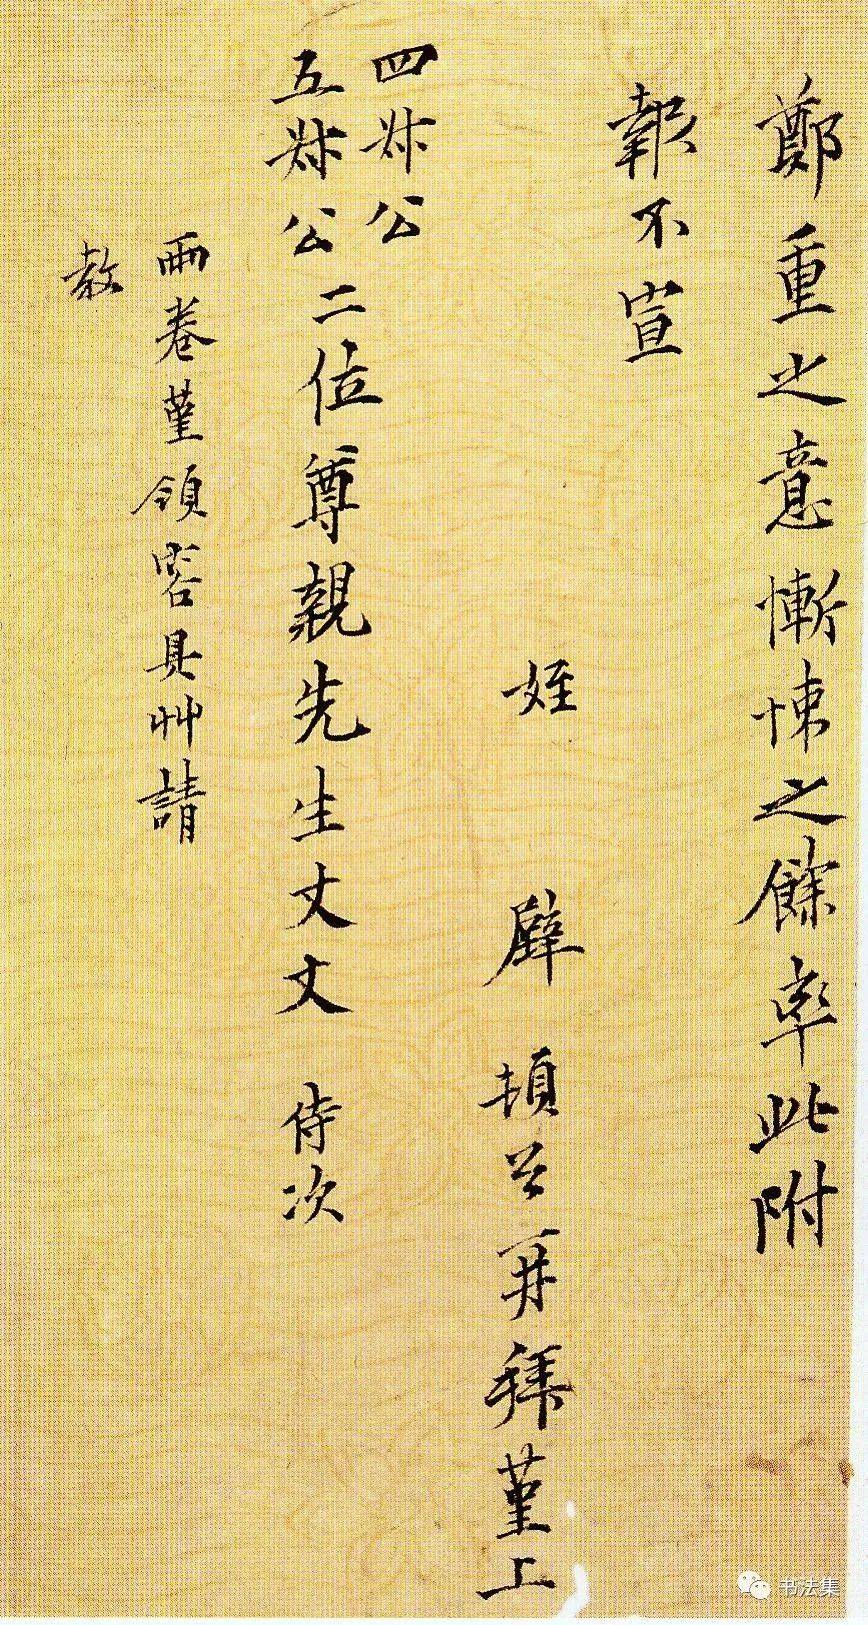 鄭重之意慚悚之餘率此附
報不宣
姪 頓首再拜堇上
四叔公
五叔公二位尊親先生丈丈 侍次
兩卷堇領容具艸請
教
书法集